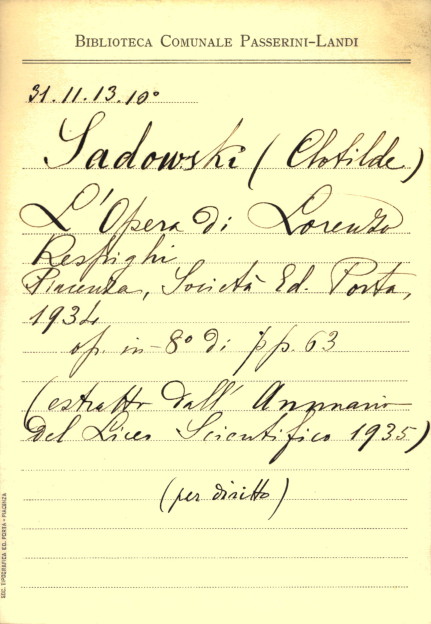 BIBLIOTECA COMUNALE PASSERINI-LANDI
31.11.13.10°
Sadowski (Clotilde)
L'Opera di Lorenzo
Respighi
Piacenza, Società Ed. Porta,
1934
op. in-8° di pp. 63
(estratto dall'Annuario
del Liceo Scientifico 1935)
(per diritto)
SOC. TIPOGRAFICA ED. PORTA - PIACENZA